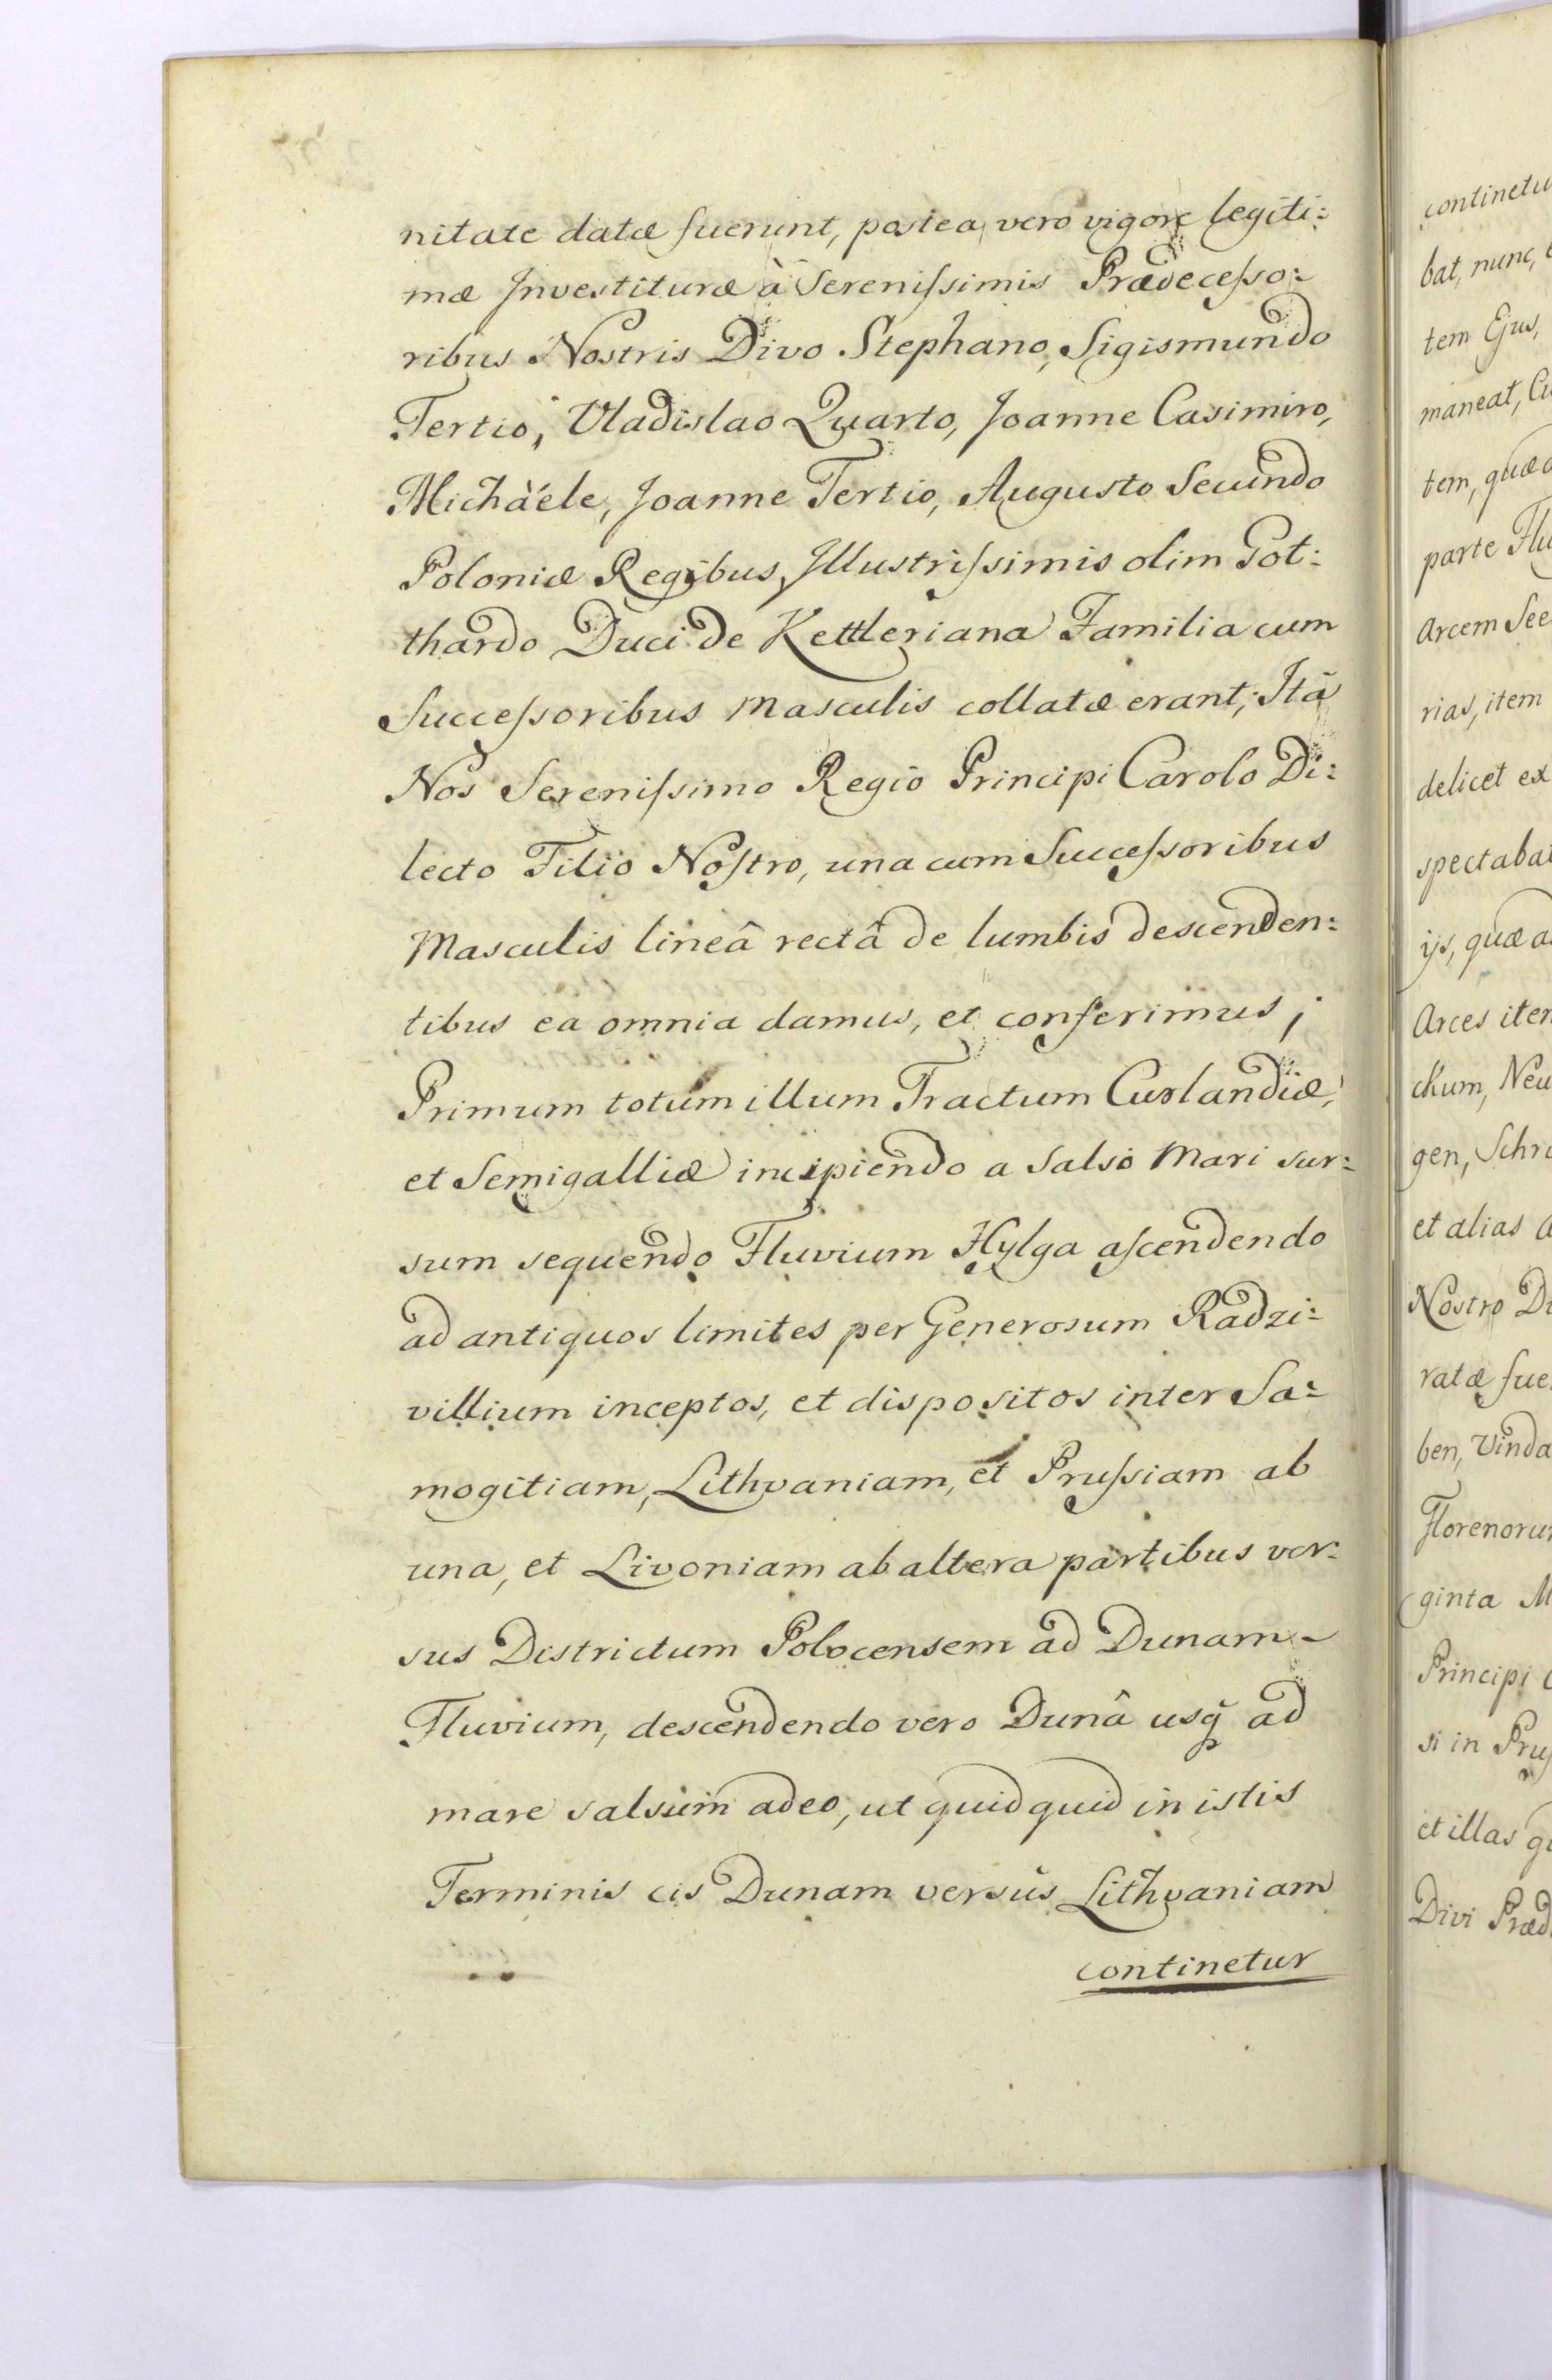 nitate datæ fuerunt, postea vero vigore legiti:
mæ Investituræ à Sereniſsimis Prædeceſso:
ribus Nostris Divo Stephano, Sigismundo
Tertio, Vladislao Quarto, Joanne Casimiro,
Michàéle, Joanne Tertio, Augusto Secundo
Poloniæ Regibus, Illustriſsimis olim Got:
thardo Duci de Kettleriana Familia cum
Succeſsoribus Masculis collatæ erant; Ità
Nos Sereniſsimo Regio Principi Carolo Di:
lecto Filio Noſtro, una cum Succeſsoribus
Masculis lineâ rectâ de lumbis descenden:
tibus ea omnia damus, et conferimus;
Primum totum illum Tractum Curlandiæ,
et Semigalliæ incipiendo a Salso Mari sur:
sum sequendo Fluvium Hylga aſcendendo
ad antiquos limites per Generosum Radzi:
villium inceptos, et dispositos inter Sa:
mogitiam, Lithvaniam, et Pruſsiam ab
una, et Livoniam ab altera partibus ver:
sus Districtum Polocensem ad Dunam
Fluvium, descendendo vero Dunâ usq̃ ad
mare salsum adeo, ut quidquid in istis
Terminis cis Dunam versus Lithvaniam
continetur
continetu
bat, nunc,
tem Ejus,
maneat,
tem,
parte
Arcem See
rias, item
delicet ex
spectabat
ijs, quæ a
Arces iter
chum, Neu
gen, Schr
et alias a
Nostro Du
ratæ fue
ben, Vinda
Florenorum
ginta M
Principi
si in Pruſ
et illas
Divi Præd